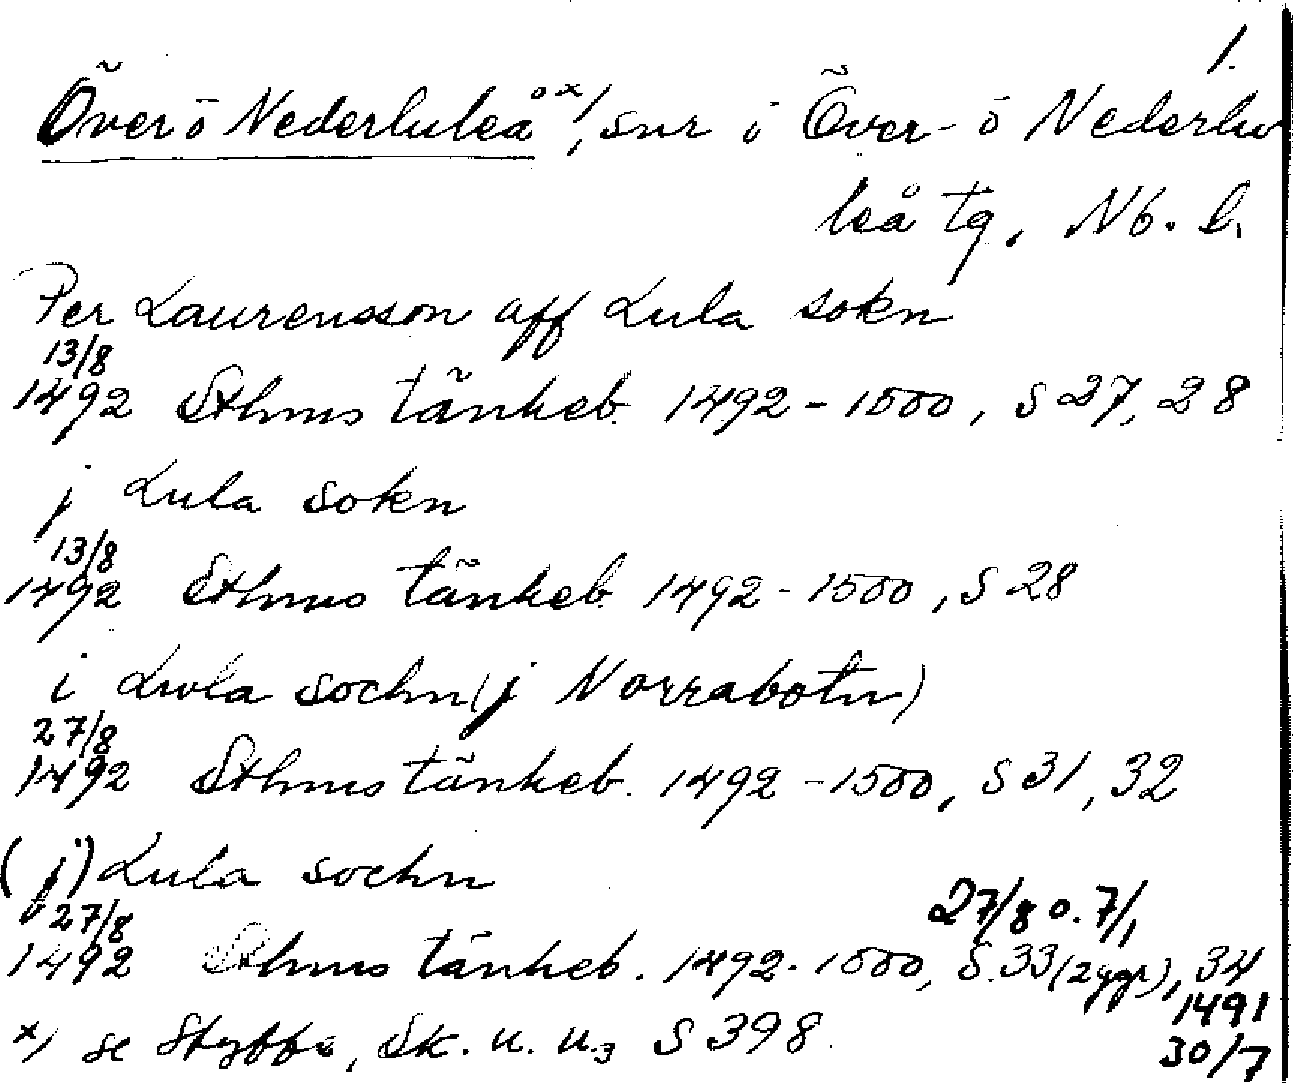 1.
Över o Nederluleå x), snr i Över- o Nederlu
leå tg, Nb. l.
Per Laurensson aff Lula sokn
13/8
1492 Sthms tänkeb. 1492-1500, S 27, 28
j Lula sokn
13/8
1492 Sthms tänkeb. 1492-1500, S 28
i Lwla sochn (j Norrabotn)
27/8
1492 Sthms tänkeb. 1492-1500, S 31, 32
(j) Lula sochn
27/8 27/8 o. 7/1
1492 Sthms tänkeb. 1492-1500, S. 33 (2 ggr), 34
1491
x) se Stybbe, Sk. u. u. S 398. 30/7